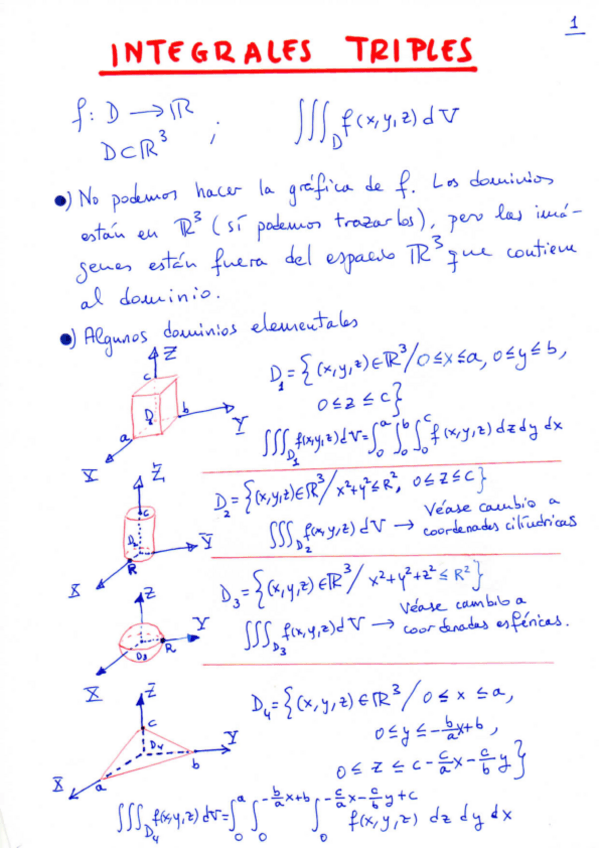 1
INTEGRALES TRIPLES
f: D → ℝ
D⊂ℝ³ ; ∭_D f(x,y,z) dV
•) No podemos hacer la gráfica de f. Los dominios
están en ℝ³ (sí podemos trazarlos), pero las imá-
genes están fuera del espacio ℝ³ que contiene
al dominio.
•) Algunos dominios elementales
Z
c
D₁
b
a
Y
X
D₁ = {(x,y,z)∈ℝ³/0≤x≤a, 0≤y≤b,
0≤z≤c}
∭_D₁ f(x,y,z)dV = ∫₀^a ∫₀^b ∫₀^c f(x,y,z) dz dy dx
Z
c
D₂
R
Y
X
D₂ = {(x,y,z)∈ℝ³/x²+y²≤R², 0≤z≤c}
∭_D₂ f(x,y,z) dV → Véase cambio a
coordenadas cilíndricas
Z
D₃
R
Y
X
D₃ = {(x,y,z)∈ℝ³/ x²+y²+z² ≤ R²}
∭_D₃ f(x,y,z)dV → Véase cambio a
coordenadas esféricas.
Z
c
D₄
a
b
Y
X
D₄ = {(x,y,z)∈ℝ³/ 0≤x≤a,
0≤y≤-b/a x+b,
0≤z≤c-c/a x-c/b y}
∭_D₄ f(x,y,z) dV = ∫₀^a ∫₀^(-b/a x+b) ∫₀^(-c/a x-c/b y+c) f(x,y,z) dz dy dx